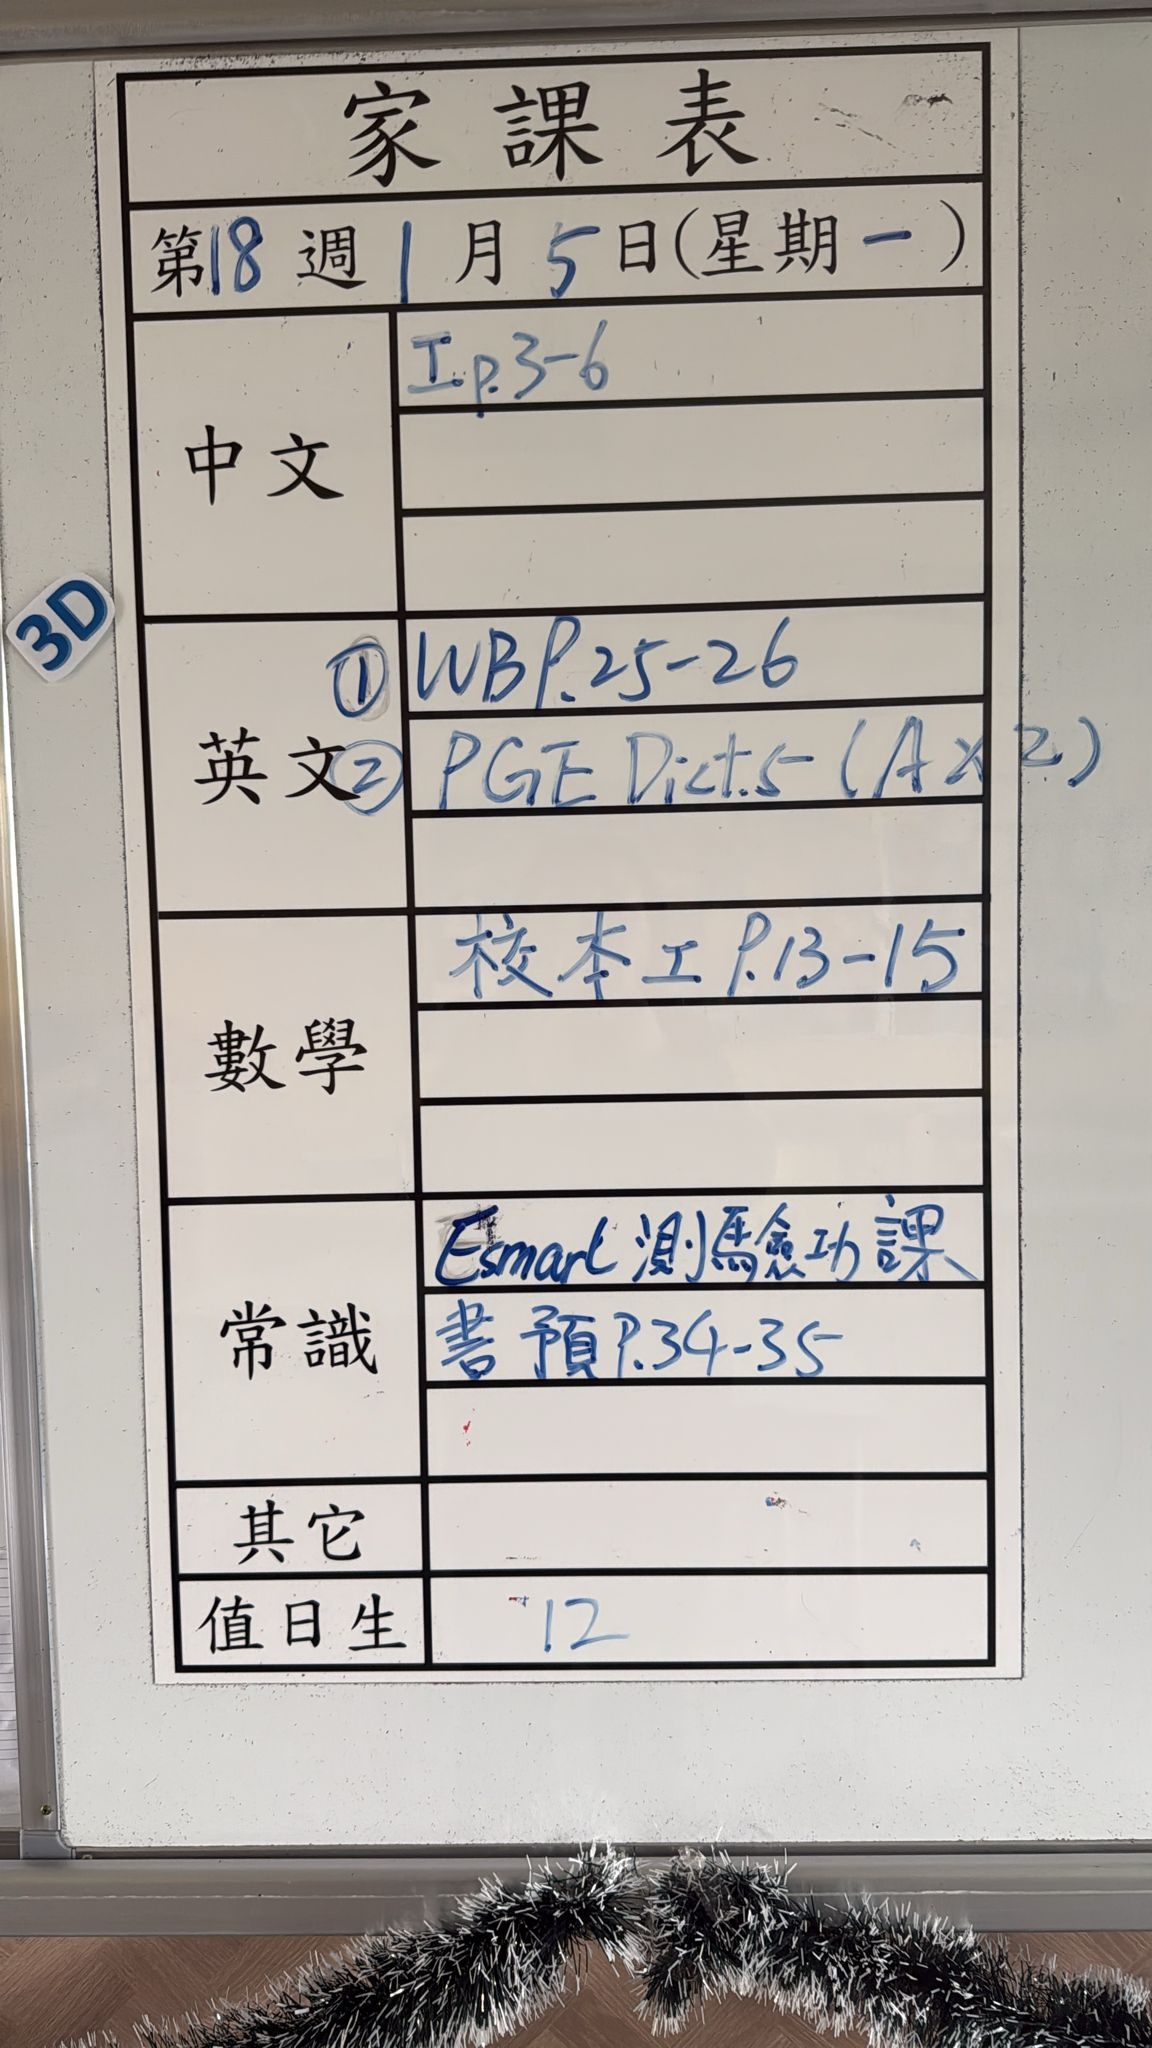 家課表
第18週1月5日(星期一)
中文
工.p.3-6
3D
英文
① WB P.25-26
② PGE Dict.5 (A×2)
數學
校本工 P.13-15
常識
Esmart 測驗功課
書預P.34-35
其它
值日生
12